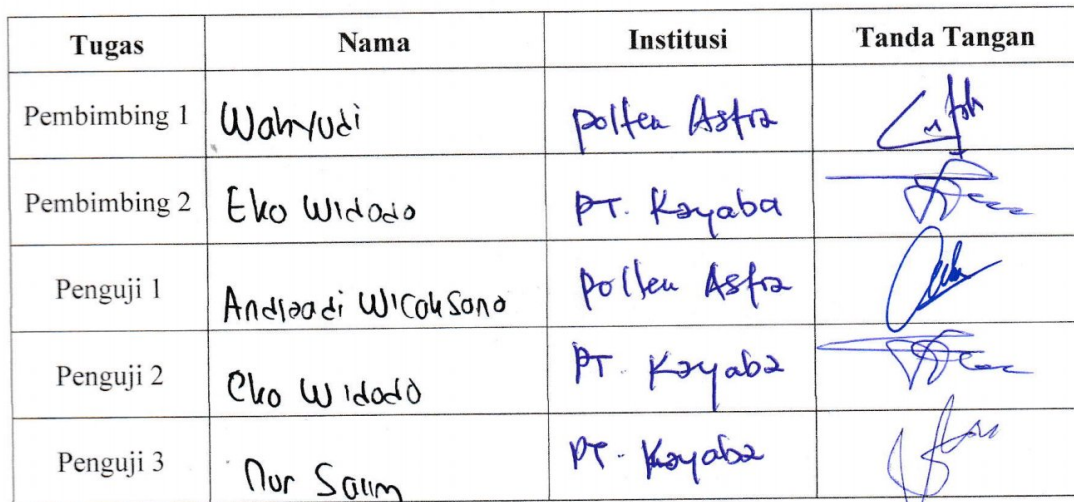 Tugas Nama Institusi Tanda Tangan
Pembimbing 1 Wahyudi Polten Astra
Pembimbing 2 Eko Widodo PT. Kayaba
Penguji 1 Wicaksono Polten Astra
Penguji 2 Eko Widodo PT. Kayaba
Penguji 3 Nur Salim PT. Kayaba